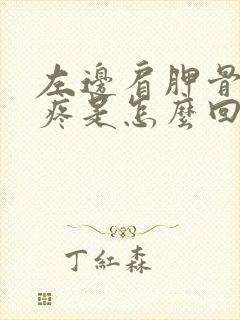 左邊肩胛骨
疼是怎麼回
丁紅森